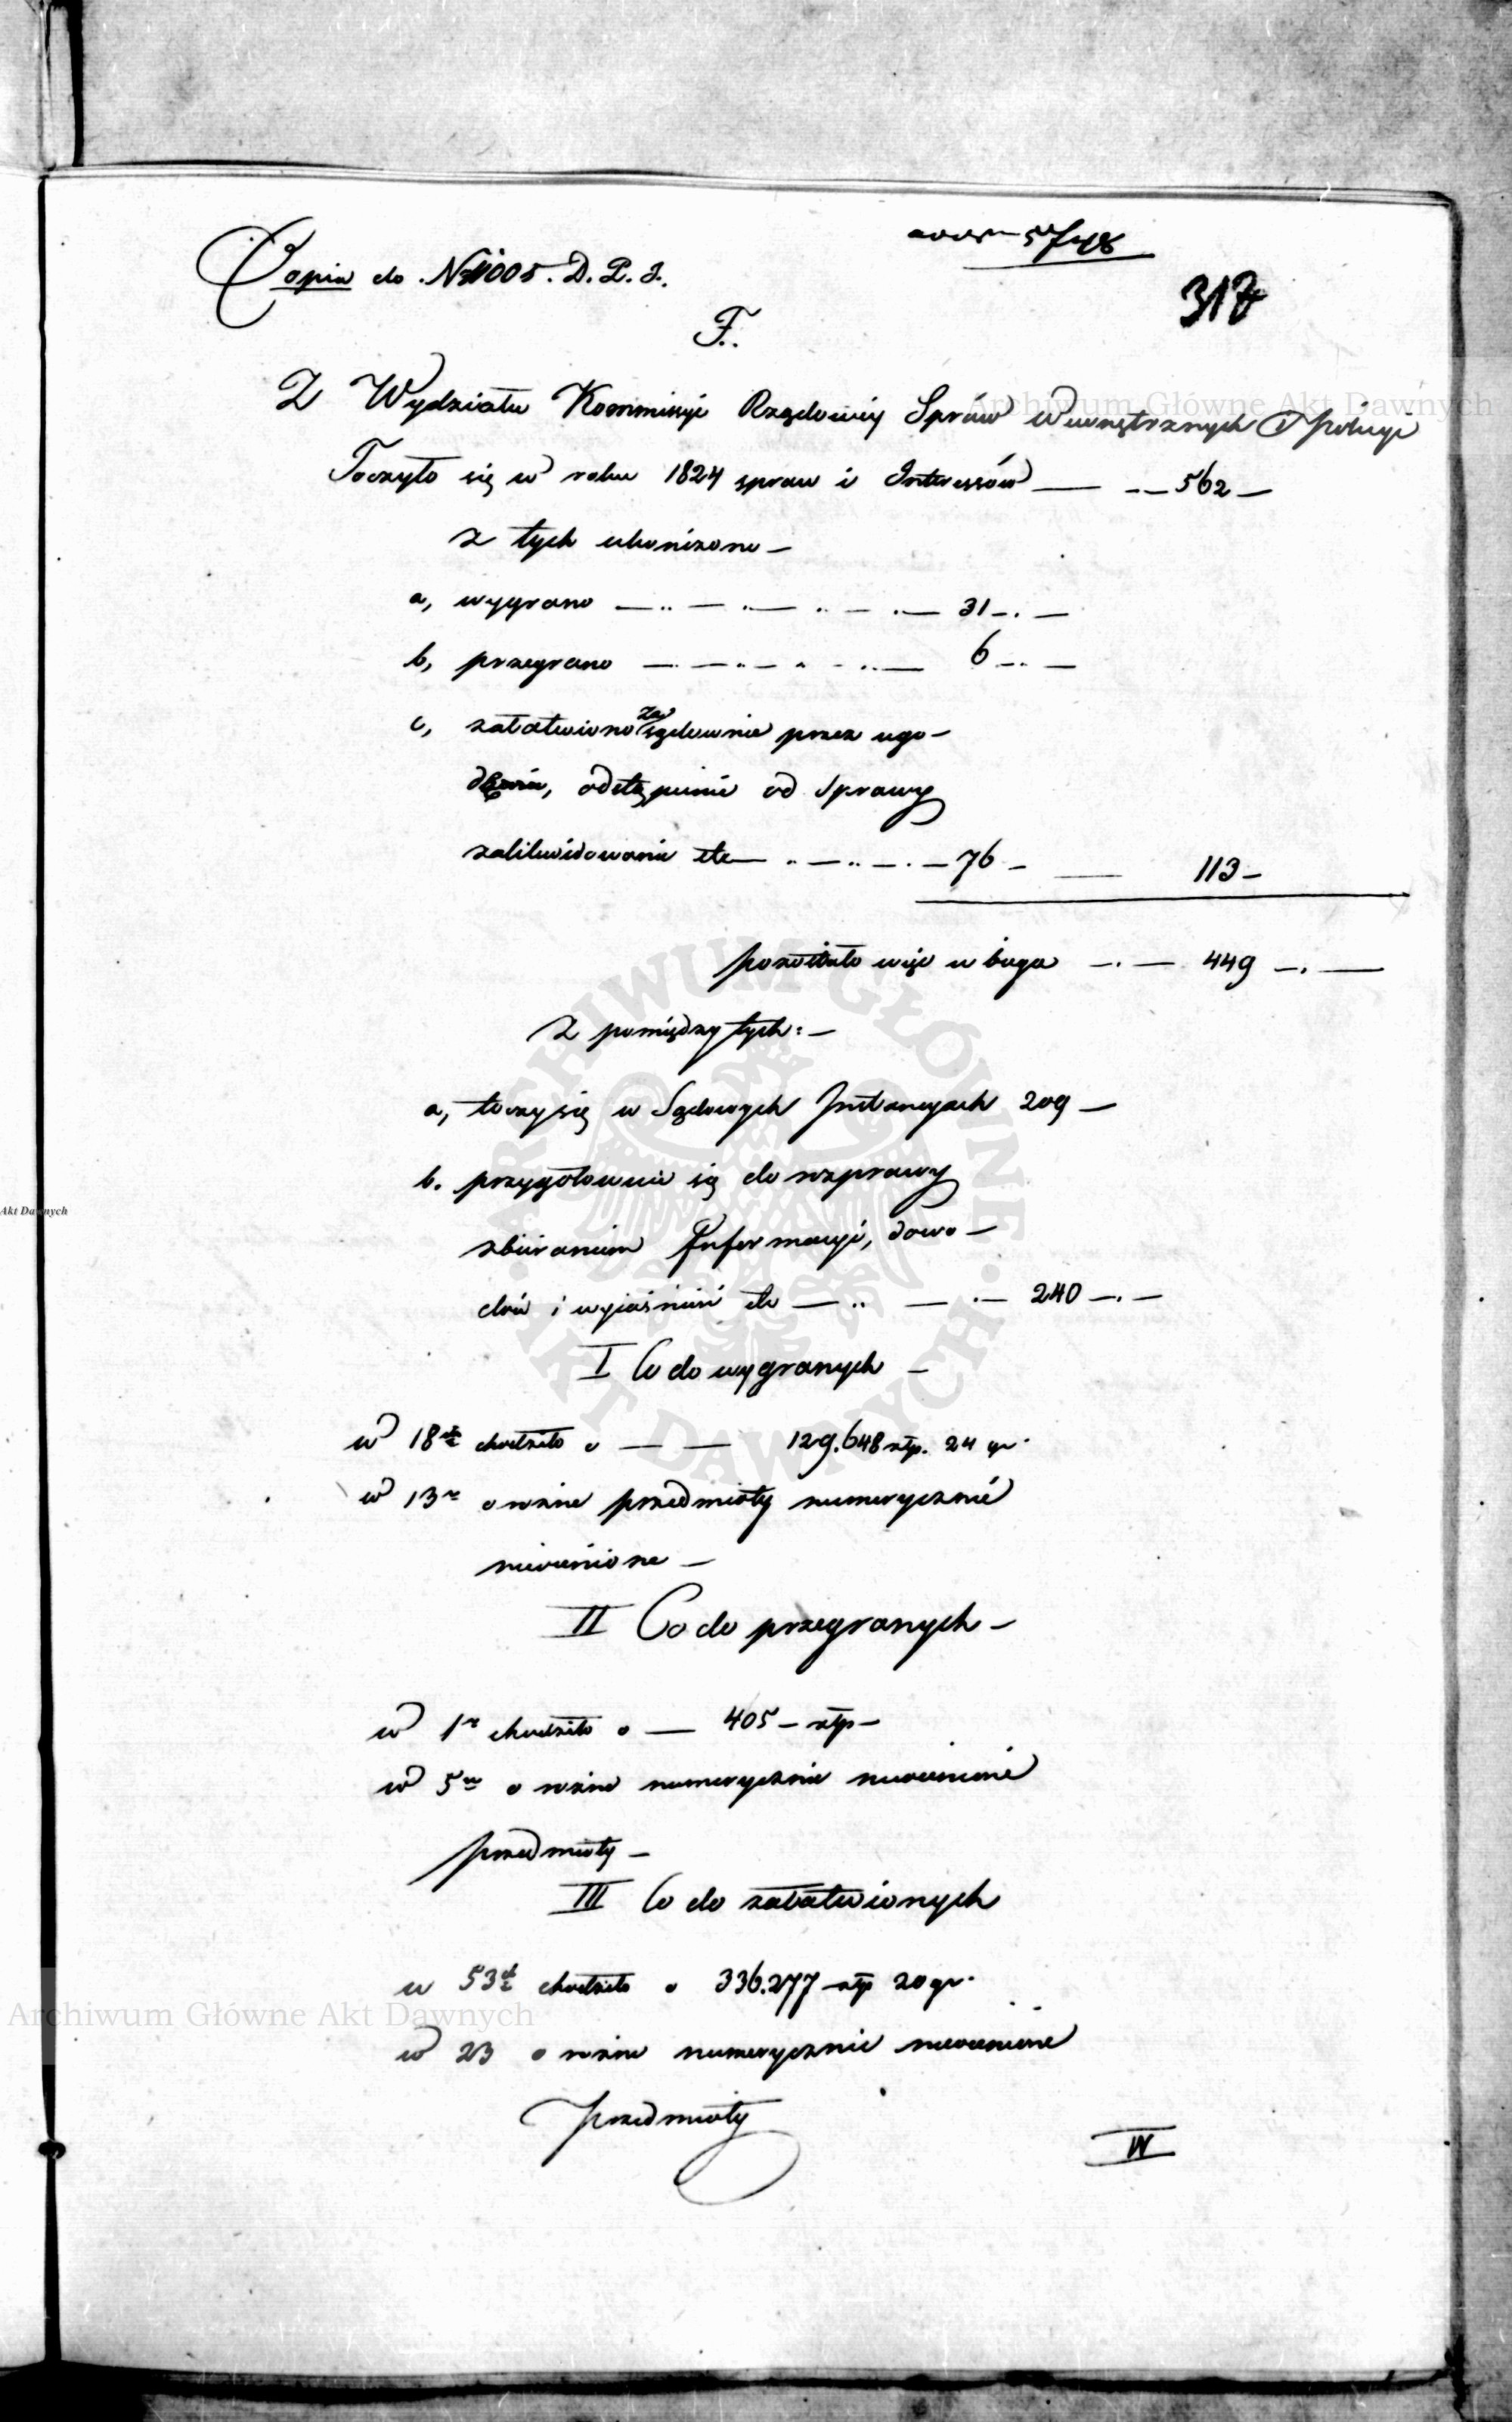 Copia do Nr 11005. D. P. J.
317
F.
Z Wydziału Kommissyi Rządowéy Spraw Wewnętrznych i Policyi
Toczyło się w roku 1824 spraw i Interessów — 562 —
z tych ukończono —
a, wygrano — 31 —
b, przegrano — 6 —
c, załatwiono zasądownie przez ugo-
dzenia, odstąpienie od Sprawy
zalikwidowanie etc — 76 — 113 —
pozostało więc w biegu — 449 —
z pomiędzy tych: —
a, toczy się w Sądowych Instancyach 209 —
b. przygotowuie się do rozprawy
zbieraniem Informacyi, dowo-
dów i wyiaśnień etc — 240 —
I Co do wygranych —
w 18tu chodziło o — 129.648 złp. 24 gr.
w 13tu o rożne przedmioty numerycznie
nieocenione —
II Co do przegranych —
w 1n chodziło o — 405 — złp —
w 5ciu o rożne numerycznie nieocenione
przedmioty —
III Co do załatwionych
w 53ch chodziło o 336.277 złp 20 gr.
w 23 o rożne numerycznie nieocenione
przedmioty
IV
Archiwum Główne Akt Dawnych
Akt Dawnych
ARCHIWUM GŁÓWNE · AKT DAWNYCH ·
Archiwum Główne Akt Dawnych